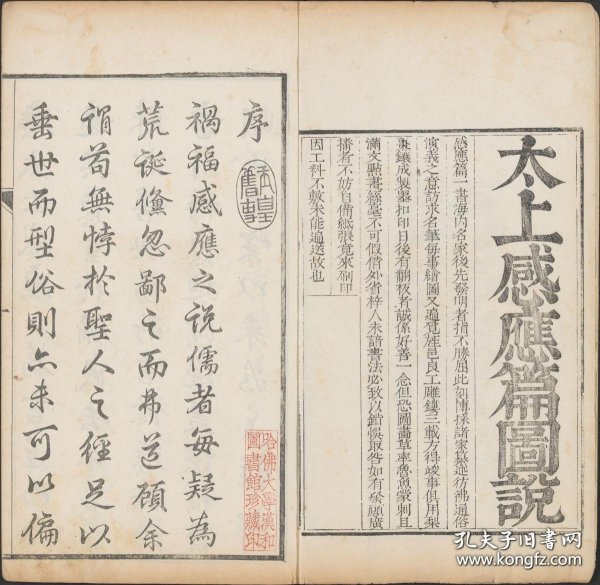 太上感應篇圖說
感應篇一書海內名家後先發明者指不勝屈此刻博採諸家纂述彷彿通俗
演義之意訪求名筆每事繪圖又遍覓旌邑良工雕鏤三載方得竣事俱用梨
棗鑲成製墨扣印日後有翻板者誠係好善一念但恐圖畫草率魯魚豕刻且
滿文點畫絲毫不可假借外省梓人未諳書法必致以錯悞取咎如有發願廣
播者不妨自備紙張竟來刷印
因工料不敷未能遍送故也
序
禍福感應之說儒者每疑為
荒誕儵忽鄙之而弗道顧余
謂苟無悖於聖人之經足以
垂世而型俗則亦未可以偏
哈佛大學漢和
圖書館珍藏印
孔夫子旧书网
www.kongfz.com